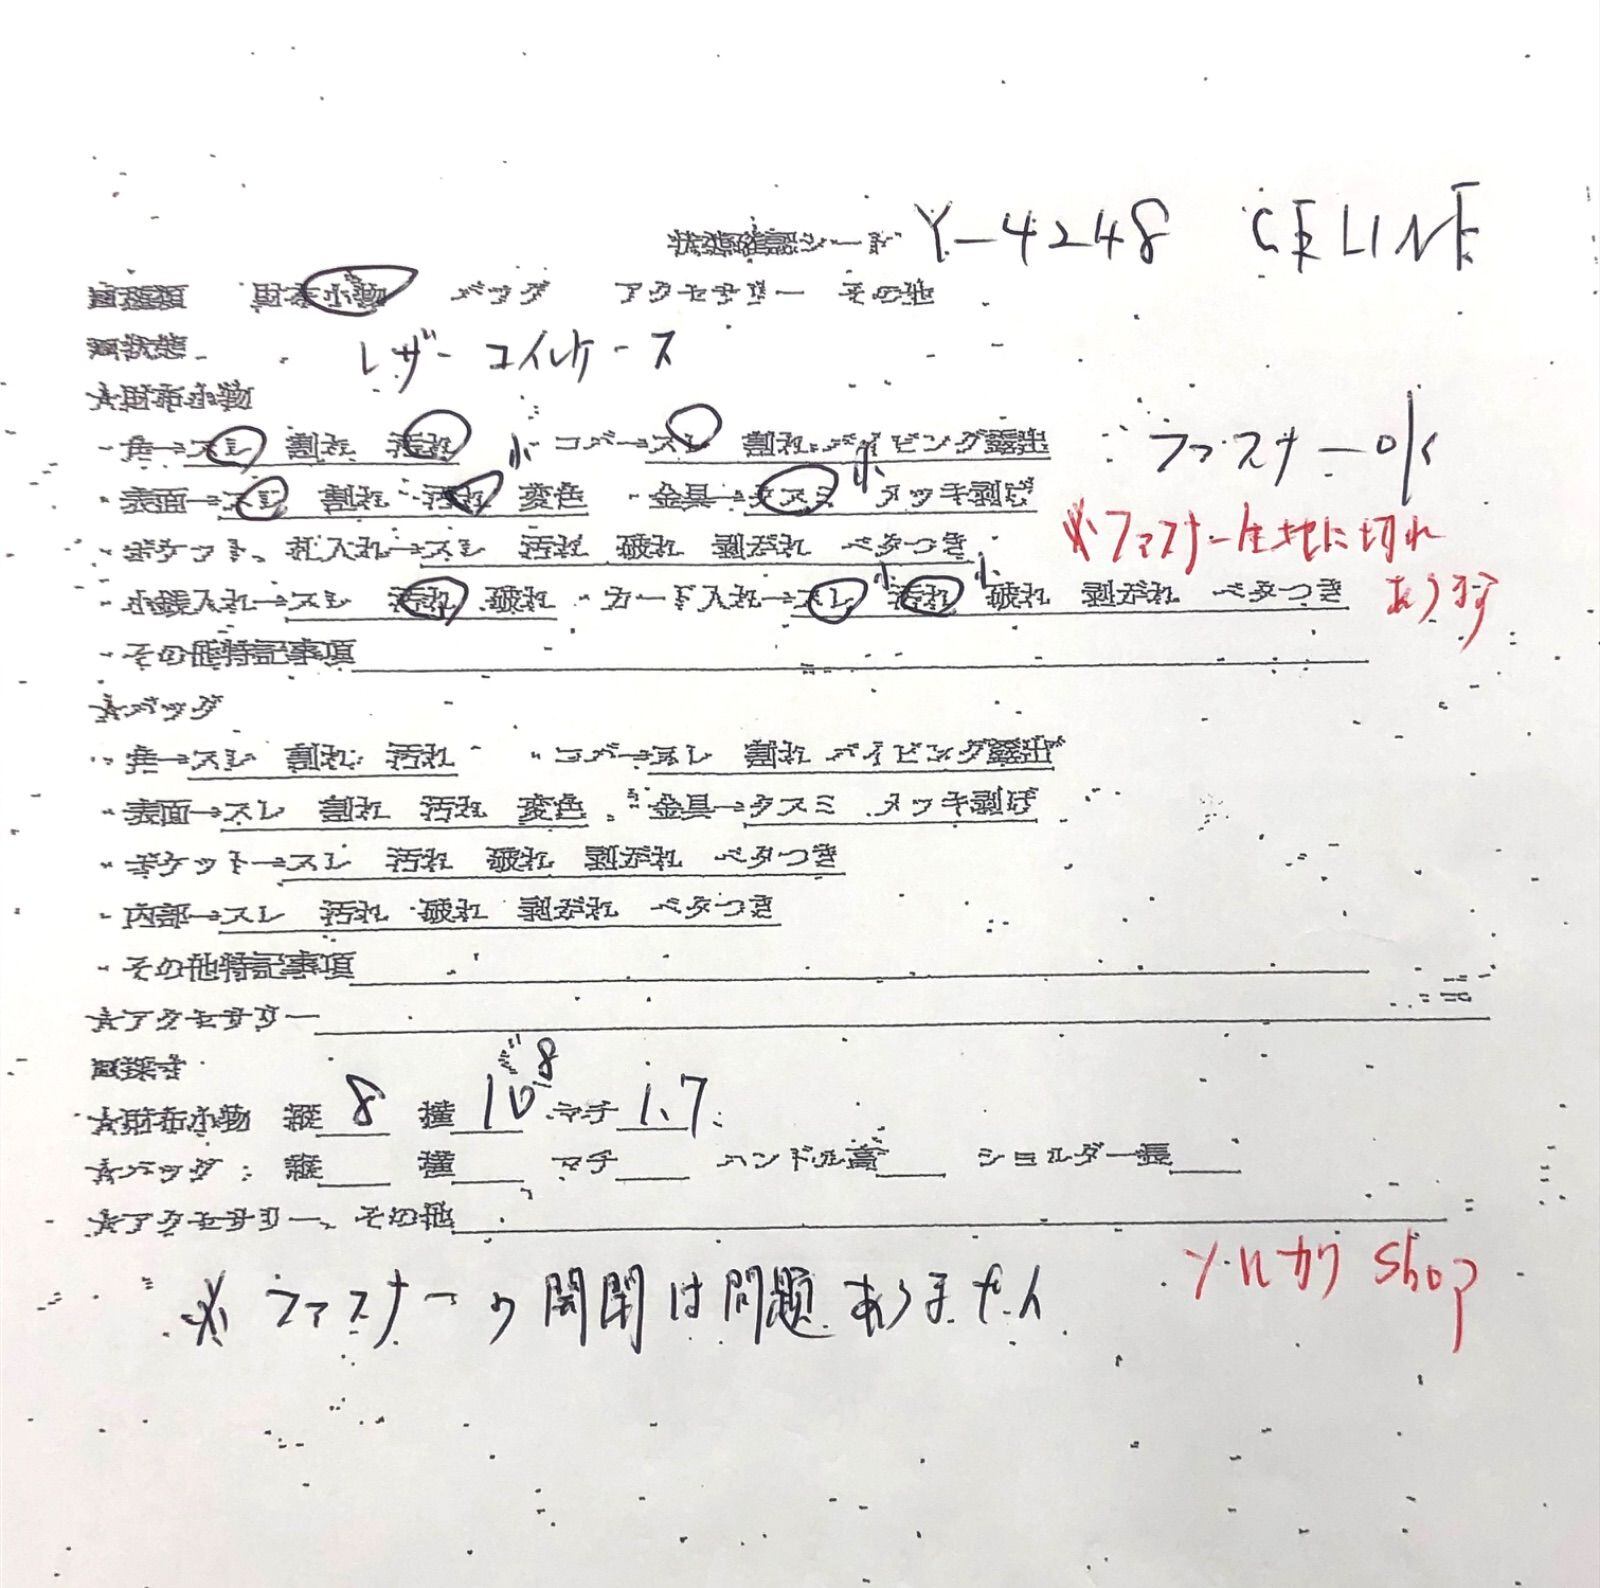 状態確認シート Y-4248 CELINE
■種類 財布小物 バッグ アクセサリー その他
■状態 レザーコインケース
★財布小物
・角→スレ 割れ 汚れ 小 コバ→スレ 割れ パイピング露出 ファスナーOK
・表面→スレ 割れ 汚れ 変色 ・金具→クスミ 小 メッキ剥げ
※ファスナー生地に切れ
・ポケット、札入れ→スレ 汚れ 破れ 剥がれ ベタつき
・小銭入れ→スレ 汚れ 破れ ・カード入れ→スレ 小 汚れ 小 破れ 剥がれ ベタつき あります
・その他特記事項
★バッグ
・角→スレ 割れ 汚れ ・コバ→スレ 割れ パイピング露出
・表面→スレ 割れ 汚れ 変色 ・金具→クスミ メッキ剥げ
・ポケット→スレ 汚れ 破れ 剥がれ ベタつき
・内部→スレ 汚れ 破れ 剥がれ ベタつき
・その他特記事項
★アクセサリー
■採寸
★財布小物 縦 8 横 10 8 マチ 1.7
★バッグ:縦 横 マチ ハンドル高 ショルダー長
★アクセサリー、その他
shop
※ファスナーの開閉は問題ありません